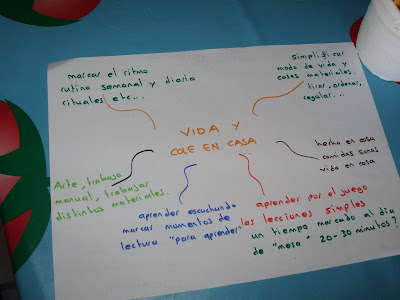 marcar el ritmo
rutina semanal y diaria
rituales etc...
simplificar
modo de vida y
cosas materiales.
tirar, ordenar,
regalar...
VIDA Y
COLE EN CASA
hecho en casa
comidas sanas
vida en casa
Arte, trabajo
manual, trabajar
distintos materiales.
aprender escuchando
marcar momentos de
lectura "para aprender"
aprender por el juego
las lecciones simples
un tiempo marcado al dia
de "mesa" 20-30 minutos?